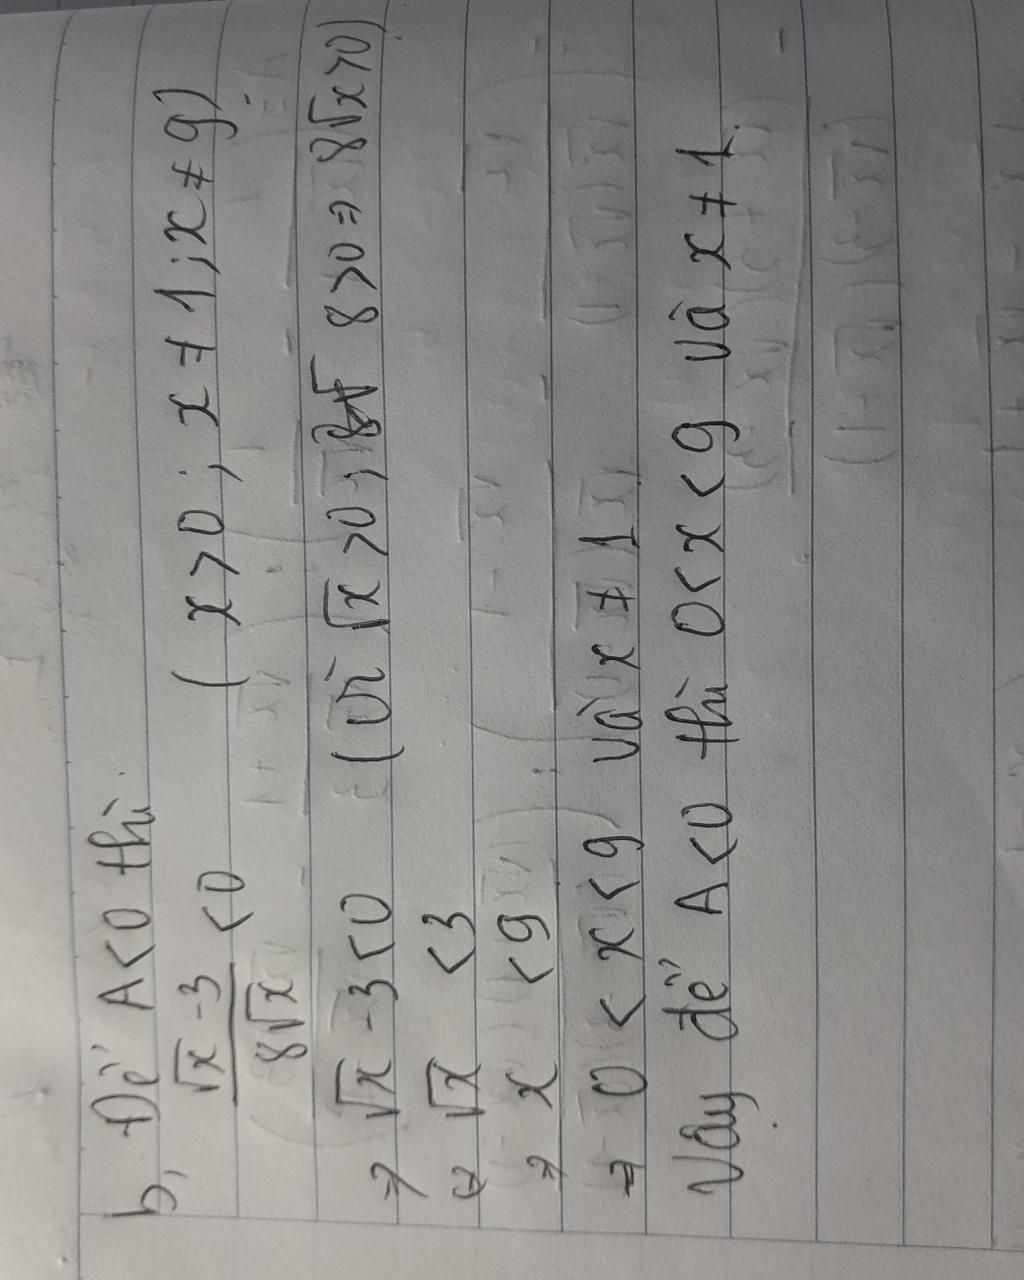 b, Để A<0 thì
√x -3 / 8√x <0 ( x>0; x ≠ 1; x ≠ 9)
⇒ √x -3<0 (Vì √x >0; 8>0 ⇒ 8√x >0)
⇔ √x <3
⇒ x <9
⇒ 0 < x < 9 và x ≠ 1
Vậy để A<0 thì 0< x < 9 và x ≠ 1.